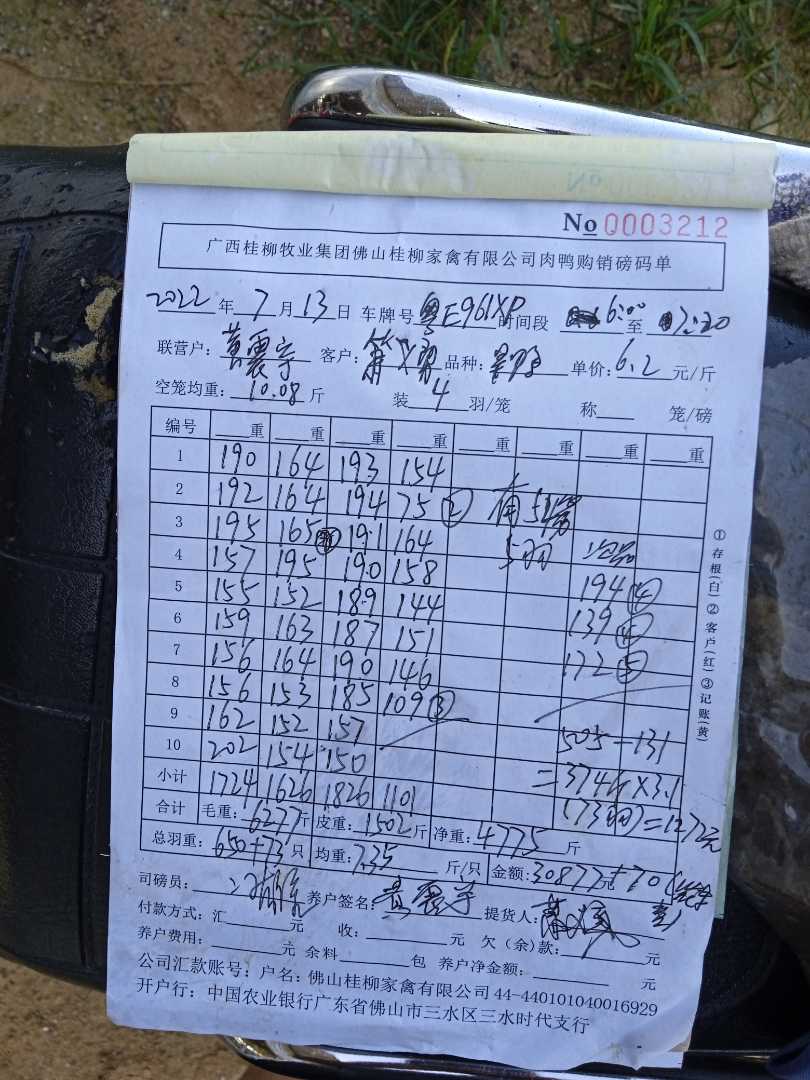 No 0003212
广西桂柳牧业集团佛山桂柳家禽有限公司肉鸭购销磅码单
2022年7月13日 车牌号粤E961XP时间段 6:00至7:20
联营户:黄震宇 客户: 品种: 单价:6.2元/斤
空笼均重:10.08斤 装4羽/笼 称 笼/磅
编号 重 重 重 重 重 重 重 重
1 190 164 193 154
2 192 164 194 75②
3 195 165 191 164 5羽
4 157 195 190 158 194④
5 155 152 189 144 139④
6 159 163 187 151 172⑤
7 156 164 190 146
8 156 153 185 109③
9 162 152 157 505-131
10 202 154 150 =374斤×3.1
小计 1724 1626 1826 1101 (73羽)=1272元
合计 毛重:6277斤 皮重:1502斤 净重:4775斤
总羽重:650+73只 均重:7.35斤/只 金额:30877
司磅员: 养户签名:黄震宇 提货人:
付款方式:汇 元 收: 元 欠(余)款: 元
养户费用: 元 余料 包 养户净金额: 元
公司汇款账号:户名:佛山桂柳家禽有限公司44-440101040016929
开户行:中国农业银行广东省佛山市三水区三水时代支行
①存根(白)②客户(红)③记账(黄)